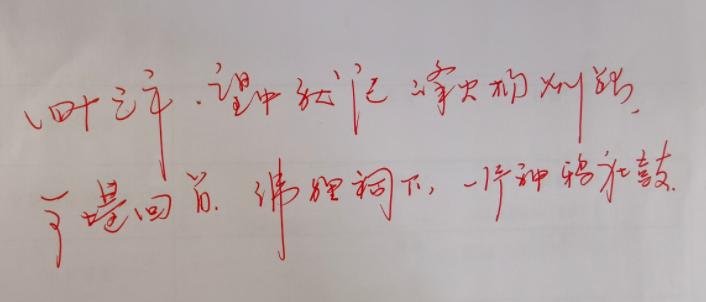 四十三年,望中犹记 烽火扬州路.
可堪回首.佛狸祠下,一片神鸦社鼓.